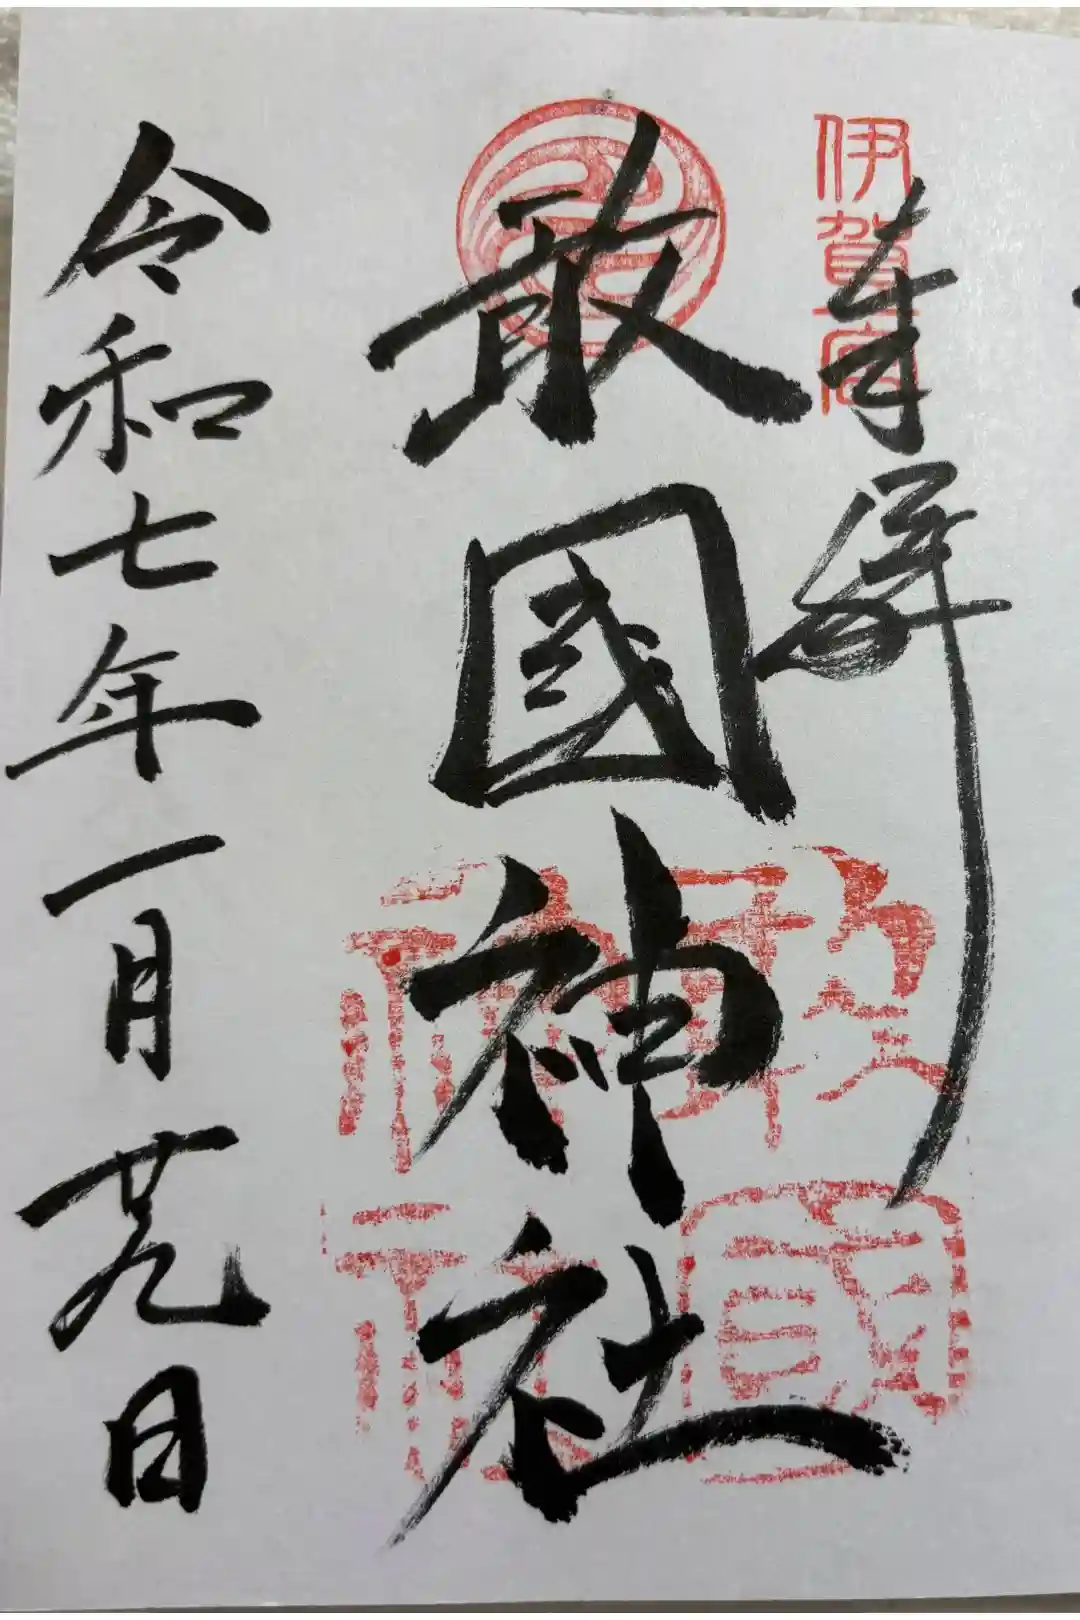 伊賀一宮
奉拝
敢國神社
敢國神社
令和七年一月廿九日